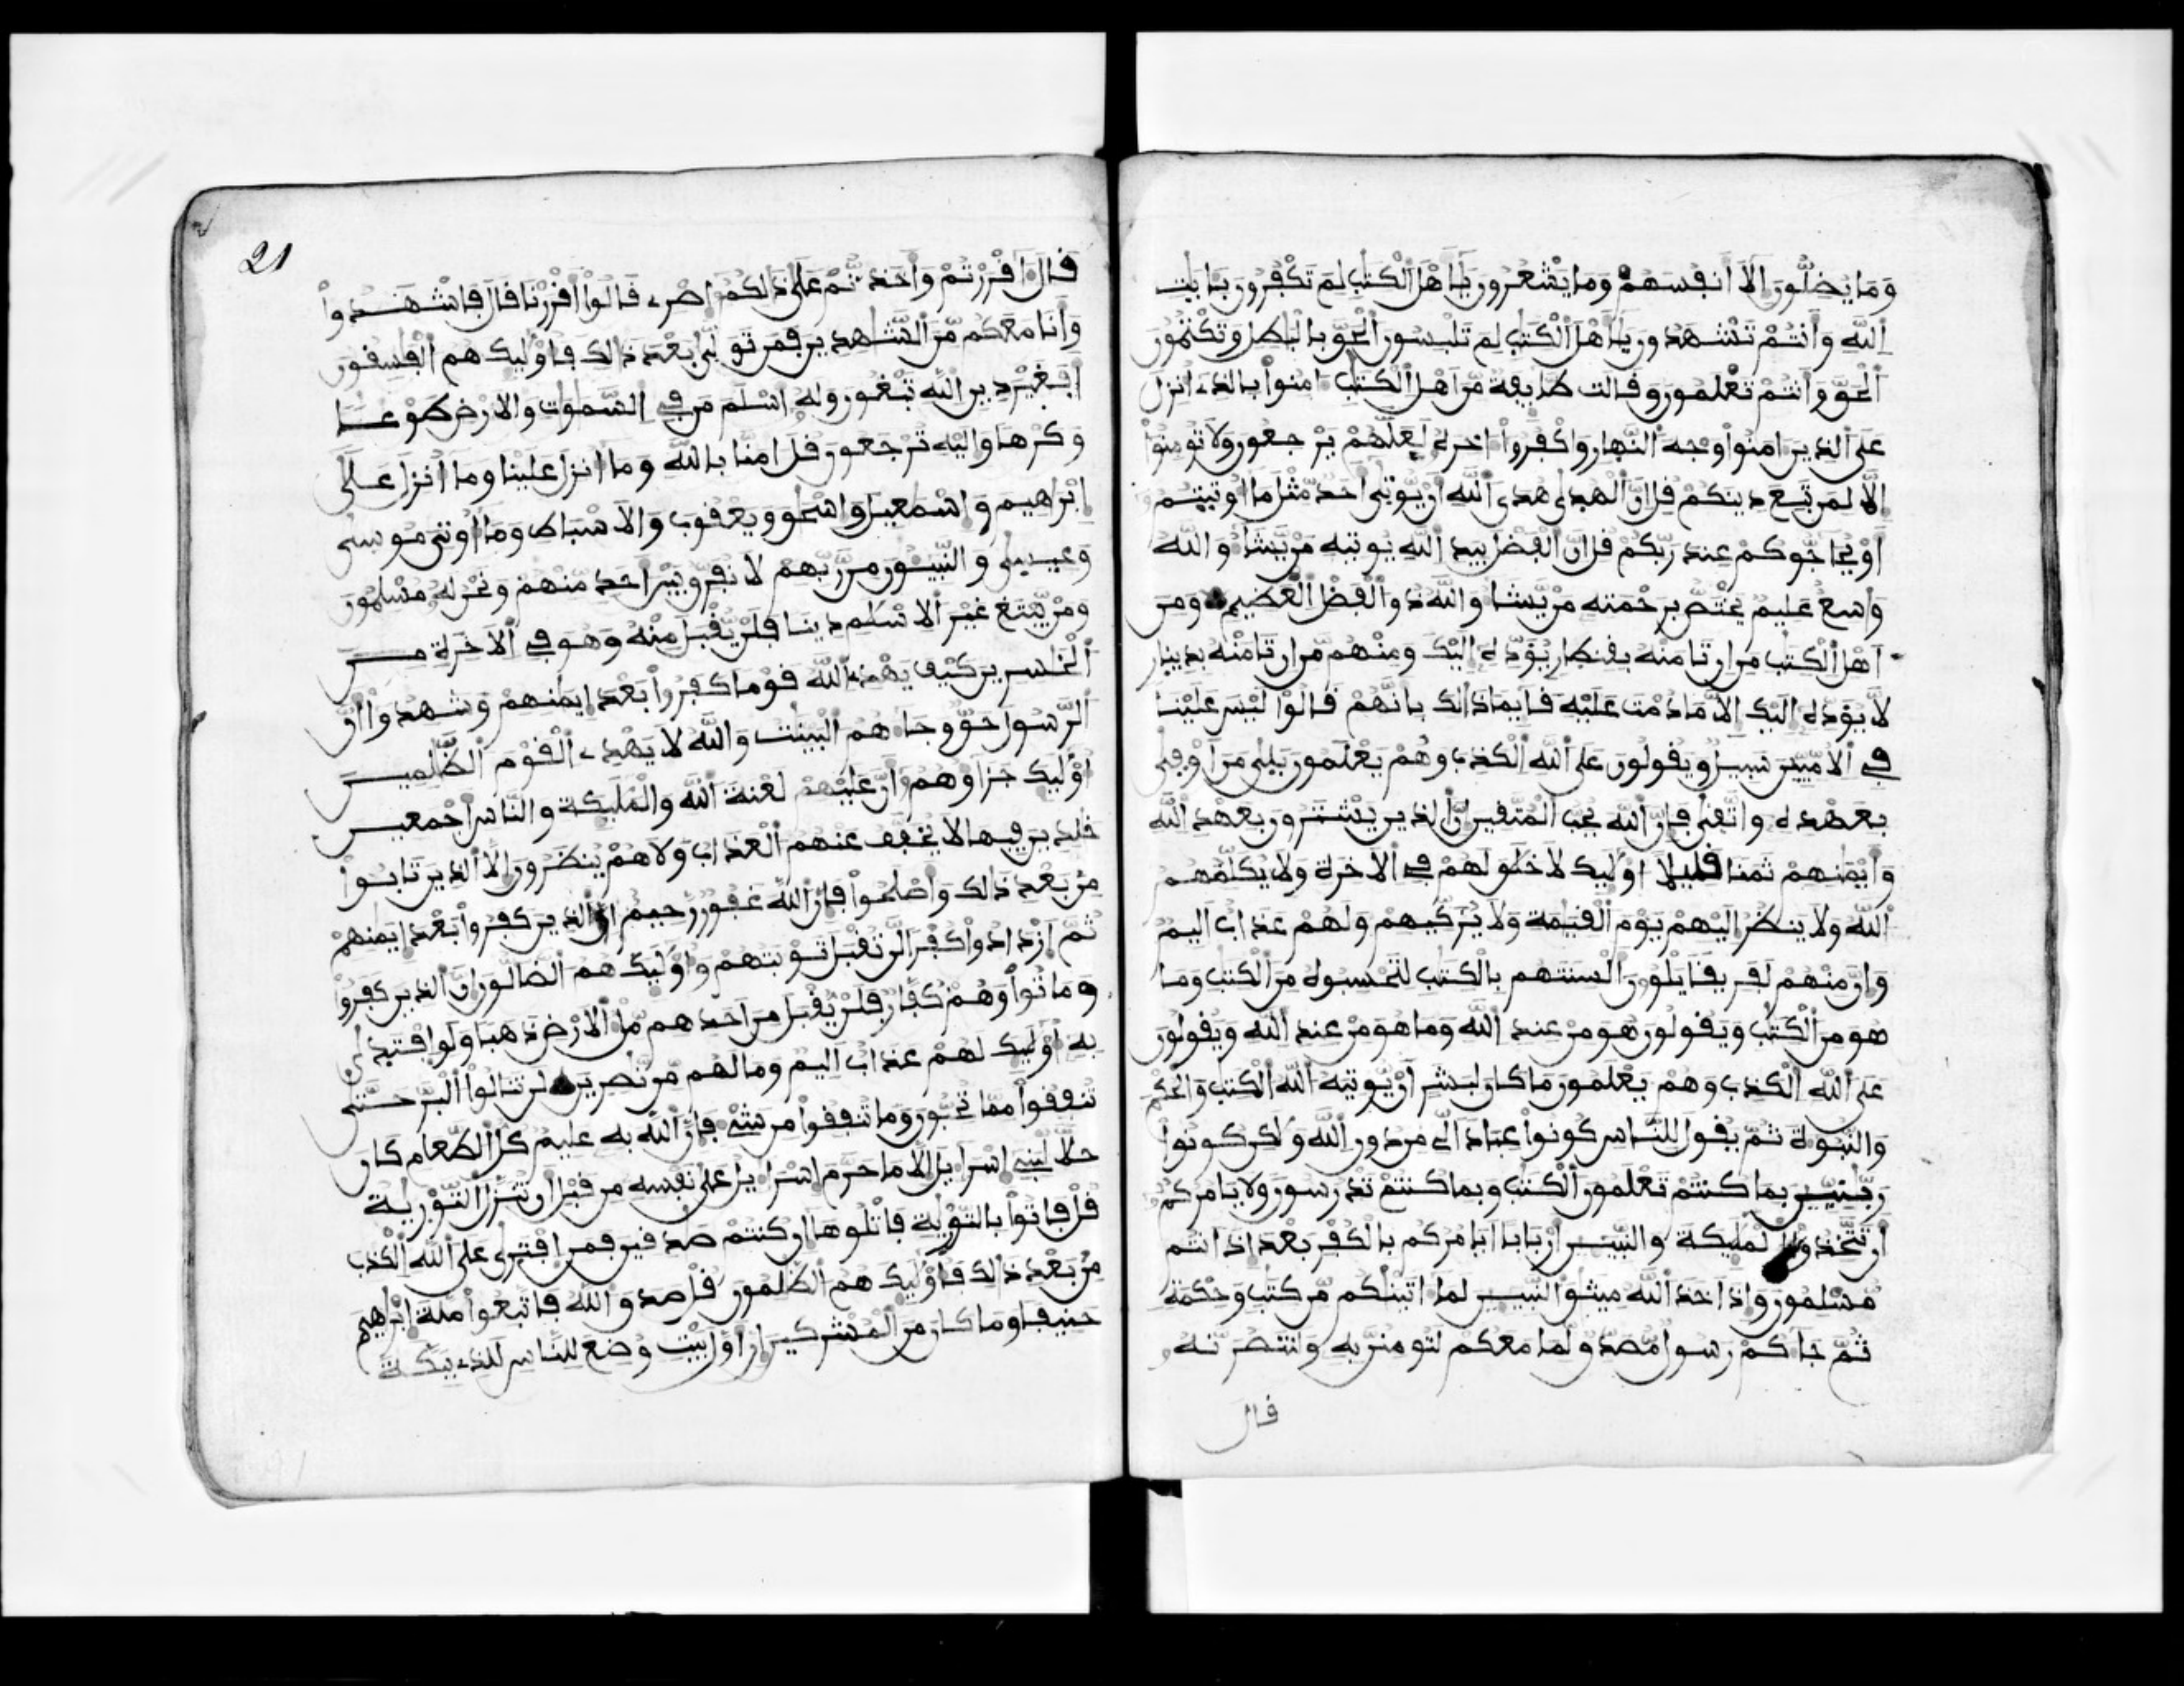 وَمَا يُضِلُّونَ إِلَّا أَنفُسَهُمْ وَمَا يَشْعُرُونَ يَٰأَهْلَ ٱلْكِتَٰبِ لِمَ تَكْفُرُونَ بِـَٔايَٰتِ
ٱللَّهِ وَأَنتُمْ تَشْهَدُونَ يَٰأَهْلَ ٱلْكِتَٰبِ لِمَ تَلْبِسُونَ ٱلْحَقَّ بِالْبَٰطِلِ وَتَكْتُمُونَ
ٱلْحَقَّ وَأَنتُمْ تَعْلَمُونَ وَقَالَت طَّايِفَةٌ مِّنْ أَهْلِ ٱلْكِتَٰبِ ءَامِنُوا بِالَّذِي أُنزِلَ
عَلَى ٱلَّذِينَ ءَامَنُوا وَجْهَ ٱلنَّهَارِ وَاكْفُرُوا ءَاخِرَهُ لَعَلَّهُمْ يَرْجِعُونَ وَلَا تُومِنُوا
إِلَّا لِمَن تَبِعَ دِينَكُمْ قُلْ إِنَّ ٱلْهُدَىٰ هُدَى ٱللَّهِ أَنْ يُّوتَىٰ أَحَدٌ مِّثْلَ مَا أُوتِيتُمْ
أَوْ يُحَاجُّوكُمْ عِندَ رَبِّكُمْ قُلْ إِنَّ ٱلْفَضْلَ بِيَدِ ٱللَّهِ يُوتِيهِ مَنْ يَّشَا وَاللَّهُ
وَٰسِعٌ عَلِيمٌ يَخْتَصُّ بِرَحْمَتِهِ مَنْ يَّشَا وَاللَّهُ ذُو ٱلْفَضْلِ ٱلْعَظِيمِ وَمِنَ
أَهْلِ ٱلْكِتَٰبِ مَنْ إِن تَامَنْهُ بِقِنطَارٍ يُؤَدِّهِ إِلَيْكَ وَمِنْهُم مَّنْ إِن تَامَنْهُ بِدِينَارٍ
لَّا يُؤَدِّهِ إِلَيْكَ إِلَّا مَا دُمْتَ عَلَيْهِ قَايِمًا ذَٰلِكَ بِأَنَّهُمْ قَالُوا لَيْسَ عَلَيْنَا
فِي ٱلْأُمِّيِّينَ سَبِيلٌ وَيَقُولُونَ عَلَى ٱللَّهِ ٱلْكَذِبَ وَهُمْ يَعْلَمُونَ بَلَىٰ مَنْ أَوْفَىٰ
بِعَهْدِهِ وَاتَّقَىٰ فَإِنَّ ٱللَّهَ يُحِبُّ ٱلْمُتَّقِينَ إِنَّ ٱلَّذِينَ يَشْتَرُونَ بِعَهْدِ ٱللَّهِ
وَأَيْمَٰنِهِمْ ثَمَنًا قَلِيلًا أُوْلَٰيِكَ لَا خَلَٰقَ لَهُمْ فِي ٱلْأَخِرَةِ وَلَا يُكَلِّمُهُمُ
ٱللَّهُ وَلَا يَنظُرُ إِلَيْهِمْ يَوْمَ ٱلْقِيَٰمَةِ وَلَا يُزَكِّيهِمْ وَلَهُمْ عَذَابٌ أَلِيمٌ
وَإِنَّ مِنْهُمْ لَفَرِيقًا يَلْوُۥنَ أَلْسِنَتَهُم بِالْكِتَٰبِ لِتَحْسِبُوهُ مِنَ ٱلْكِتَٰبِ وَمَا
هُوَ مِنَ ٱلْكِتَٰبِ وَيَقُولُونَ هُوَ مِنْ عِندِ ٱللَّهِ وَمَا هُوَ مِنْ عِندِ ٱللَّهِ وَيَقُولُونَ
عَلَى ٱللَّهِ ٱلْكَذِبَ وَهُمْ يَعْلَمُونَ مَا كَانَ لِبَشَرٍ أَنْ يُّوتِيَهُ ٱللَّهُ ٱلْكِتَٰبَ وَالْحُكْمَ
وَالنُّبُوءَةَ ثُمَّ يَقُولَ لِلنَّاسِ كُونُوا عِبَادًا لِّي مِن دُونِ ٱللَّهِ وَلَٰكِن كُونُوا
رَبَّٰنِيِّينَ بِمَا كُنتُمْ تَعْلَمُونَ ٱلْكِتَٰبَ وَبِمَا كُنتُمْ تَدْرُسُونَ وَلَا يَامُرُكُمُ
أَن تَتَّخِذُوا ٱلْمَلَٰيِكَةَ وَالنَّبِيِٕينَ أَرْبَابًا أَيَامُرُكُم بِالْكُفْرِ بَعْدَ إِذْ أَنتُم
مُّسْلِمُونَ وَإِذْ أَخَذَ ٱللَّهُ مِيثَٰقَ ٱلنَّبِيِٕينَ لَمَا ءَاتَيْنَٰكُم مِّن كِتَٰبٍ وَحِكْمَةٍ
ثُمَّ جَاكُمْ رَسُولٌ مُّصَدِّقٌ لِّمَا مَعَكُمْ لَتُومِنُنَّ بِهِ وَلَتَنصُرُنَّهُ
قال
21
قَالَ ءَاقْرَرْتُمْ وَأَخَذتُّمْ عَلَىٰ ذَٰلِكُمُ إِصْرِي قَالُوا أَقْرَرْنَا قَالَ فَاشْهَدُوا
وَأَنَا مَعَكُم مِّنَ ٱلشَّٰهِدِينَ فَمَن تَوَلَّىٰ بَعْدَ ذَٰلِكَ فَأُوْلَٰيِكَ هُمُ ٱلْفَٰسِقُونَ
أَفَغَيْرَ دِينِ ٱللَّهِ تَبْغُونَ وَلَهُ أَسْلَمَ مَن فِي ٱلسَّمَٰوَٰتِ وَالْأَرْضِ طَوْعًا
وَكَرْهًا وَإِلَيْهِ تُرْجَعُونَ قُلْ ءَامَنَّا بِاللَّهِ وَمَا أُنزِلَ عَلَيْنَا وَمَا أُنزِلَ عَلَىٰ
إِبْرَٰهِيمَ وَإِسْمَٰعِيلَ وَإِسْحَٰقَ وَيَعْقُوبَ وَالْأَسْبَاطِ وَمَا أُوتِيَ مُوسَىٰ
وَعِيسَىٰ وَالنَّبِيُٓونَ مِن رَّبِّهِمْ لَا نُفَرِّقُ بَيْنَ أَحَدٍ مِّنْهُمْ وَنَحْنُ لَهُ مُسْلِمُونَ
وَمَنْ يَّبْتَغِ غَيْرَ ٱلْإِسْلَٰمِ دِينًا فَلَنْ يُّقْبَلَ مِنْهُ وَهُوَ فِي ٱلْأَخِرَةِ مِنَ
ٱلْخَٰسِرِينَ كَيْفَ يَهْدِي ٱللَّهُ قَوْمًا كَفَرُوا بَعْدَ إِيمَٰنِهِمْ وَشَهِدُوا أَنَّ
ٱلرَّسُولَ حَقٌّ وَجَاهُمُ ٱلْبَيِّنَٰتُ وَاللَّهُ لَا يَهْدِي ٱلْقَوْمَ ٱلظَّٰلِمِينَ
أُوْلَٰيِكَ جَزَاؤُهُمْ أَنَّ عَلَيْهِمْ لَعْنَةَ ٱللَّهِ وَالْمَلَٰيِكَةِ وَالنَّاسِ أَجْمَعِينَ
خَٰلِدِينَ فِيهَا لَا يُخَفَّفُ عَنْهُمُ ٱلْعَذَابُ وَلَا هُمْ يُنظَرُونَ إِلَّا ٱلَّذِينَ تَابُوا
مِن بَعْدِ ذَٰلِكَ وَأَصْلَحُوا فَإِنَّ ٱللَّهَ غَفُورٌ رَّحِيمٌ إِنَّ ٱلَّذِينَ كَفَرُوا بَعْدَ إِيمَٰنِهِمْ
ثُمَّ ٱزْدَادُوا كُفْرًا لَّن تُقْبَلَ تَوْبَتُهُمْ وَأُوْلَٰيِكَ هُمُ ٱلضَّالُّونَ إِنَّ ٱلَّذِينَ كَفَرُوا
وَمَاتُوا وَهُمْ كُفَّارٌ فَلَنْ يُّقْبَلَ مِنْ أَحَدِهِم مِّلْءُ ٱلْأَرْضِ ذَهَبًا وَلَوِ ٱفْتَدَىٰ
بِهِ أُوْلَٰيِكَ لَهُمْ عَذَابٌ أَلِيمٌ وَمَا لَهُم مِّن نَّٰصِرِينَ لَن تَنَالُوا ٱلْبِرَّ حَتَّىٰ
تُنفِقُوا مِمَّا تُحِبُّونَ وَمَا تُنفِقُوا مِن شَيْءٍ فَإِنَّ ٱللَّهَ بِهِ عَلِيمٌ كُلُّ ٱلطَّعَامِ كَانَ
حِلًّا لِّبَنِي إِسْرَٰيِلَ إِلَّا مَا حَرَّمَ إِسْرَٰيِلُ عَلَىٰ نَفْسِهِ مِن قَبْلِ أَن تُنَزَّلَ ٱلتَّوْرَيٰةُ
قُلْ فَاتُوا بِالتَّوْرَيٰةِ فَاتْلُوهَا إِن كُنتُمْ صَٰدِقِينَ فَمَنِ ٱفْتَرَىٰ عَلَى ٱللَّهِ ٱلْكَذِبَ
مِن بَعْدِ ذَٰلِكَ فَأُوْلَٰيِكَ هُمُ ٱلظَّٰلِمُونَ قُلْ صَدَقَ ٱللَّهُ فَاتَّبِعُوا مِلَّةَ إِبْرَٰهِيمَ
حَنِيفًا وَمَا كَانَ مِنَ ٱلْمُشْرِكِينَ إِنَّ أَوَّلَ بَيْتٍ وُضِعَ لِلنَّاسِ لَلَّذِي بِبَكَّةَ